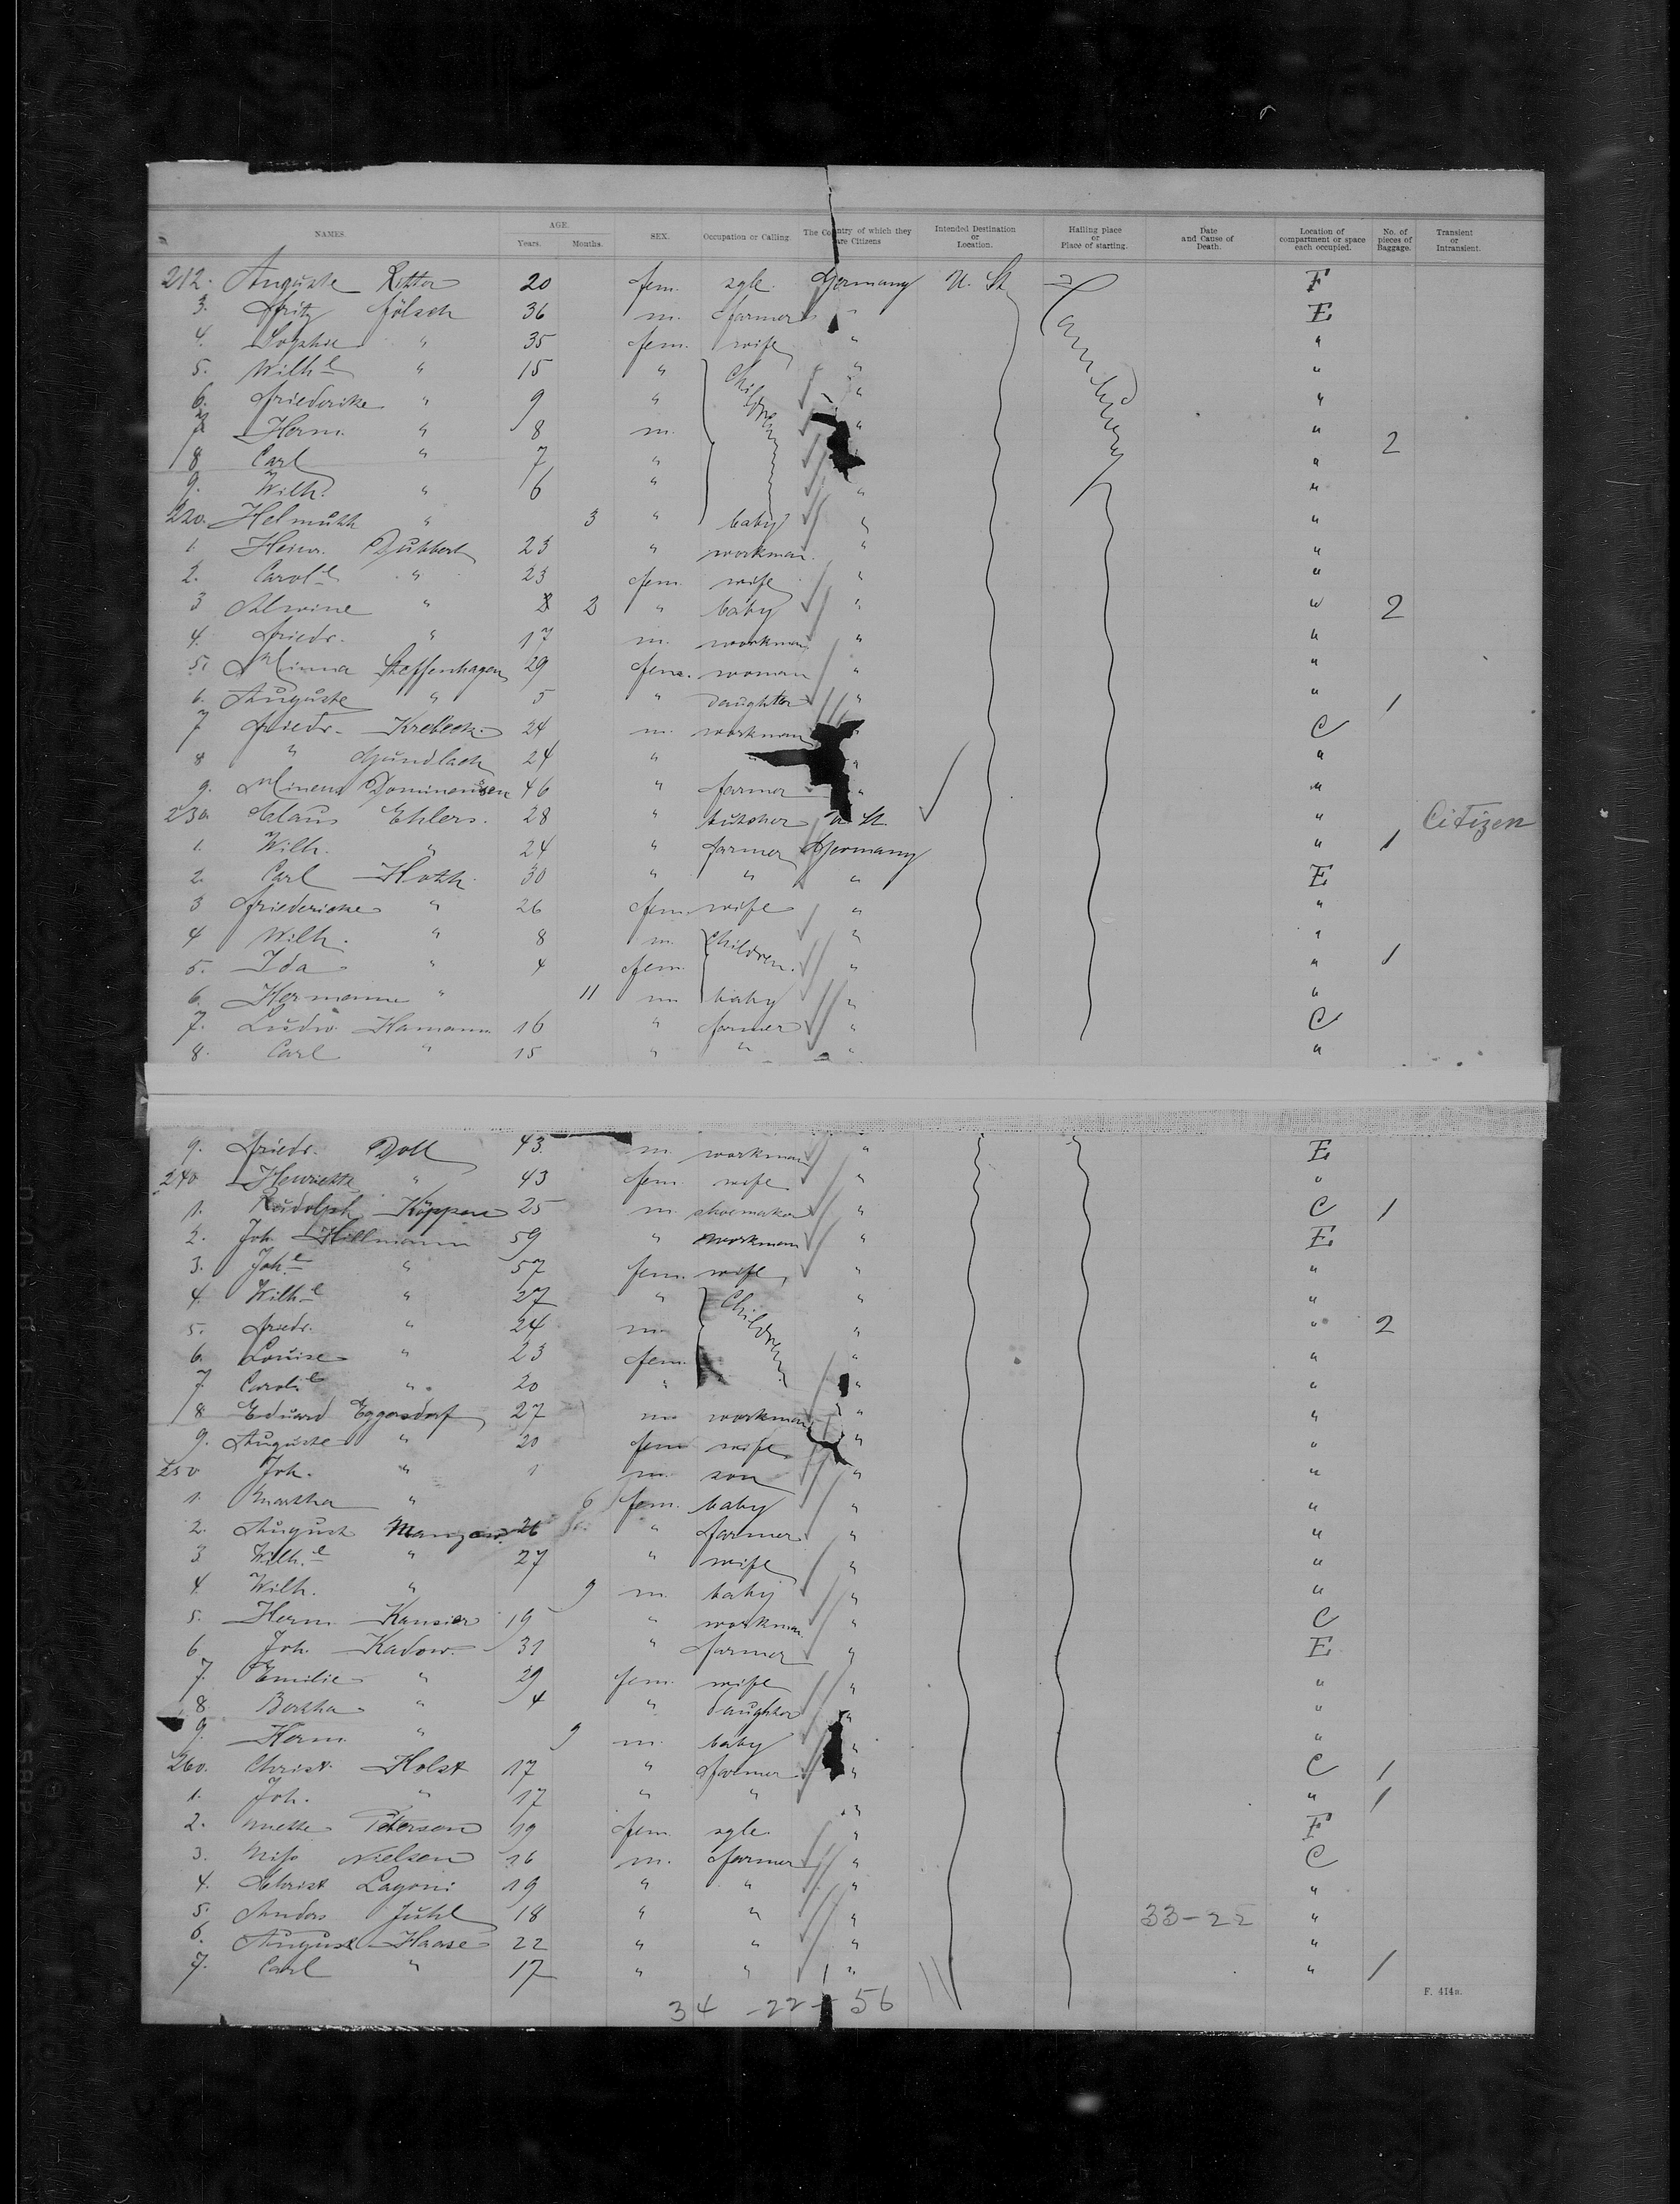 NAMES. AGE. Years. Months. SEX. Occupation or Calling. The Country of which they are Citizens Intended Destination or Location. Hailing place or Place of starting. Date and Cause of Death. Location of compartment or space each occupied. No. of pieces of Baggage. Transient or Intransient.
212. Auguste Ritter 20 fem. sgle. Germany U. St. Hamburg F
3. Fritz Jölsch 36 m. farmer " E
4. Sophie " 35 fem. wife " "
5. Wilh.e " 15 " Children " "
6. Friederike " 9 " " "
7 Herm. " 8 m. " " 2
8 Carl " 7 " "
9. Wilh. " 6 " " "
220. Helmuth " 3 " baby " "
1. Heinr. Dubbert 23 " workman " "
2. Carol.e " 23 fem. wife " "
3 Alwine " 2 " baby " " 2
4. Friedr. " 17 m. workman " "
5. Minna Steffenhagen 29 fem. woman " "
6. Auguste " 5 " daughter " " 1
7 Friedr. Krebeck 24 m. workman " C
8 " Gundlach 24 " " "
9. 46 " farmer " "
230 Claus Ehlers. 28 " butcher U. St. " Citizen
1. Wilh. " 24 " farmer Germany " 1
2. Carl Hoth 30 " " " E
3 Friedericke " 26 fem. wife " "
4 Wilh. " 8 m. Children. " "
5. Ida " 4 fem. " " 1
6. Hermann " 11 m baby " "
7. Ludw. Hamann 16 " farmer " C
8. Carl " 15 " " " "
9. Friedr. Doll 43. m. workman " E
240 Henriette " 43 fem. wife " "
1. Rudolph Köppen 25 m. shoemaker " C 1
2. Joh. Hillmann 59 " workman " E
3. Joh.e " 57 fem. wife " "
4. Wilh.e " 27 " Children " "
5. Friedr. " 24 m. " " 2
6. Louise " 23 fem. "
7 Carol.e " 20 " " "
8 Eduard Eggersdorf 27 m workman " "
9. Auguste " 20 fem wife " "
250 Joh. " 1 m. son " "
1. Martha " 6 fem. baby " "
2. August 26 " farmer " "
3 Wilh.e " 27 " wife " "
4. Wilh. " 9 m. baby " "
5. Herm. Kansier 19 " workman " C
6. Joh. Kadow. 31 " farmer " E
7. Emilie " 29 fem. wife " "
8. Bertha " 4 " daughter " "
9. Herm. " 9 m. baby " "
260. Christ. Holst 17 " farmer " C 1
1. Joh. " 17 " " " " 1
2. Mette Petersen 19 fem. sgle. " F
3. Nielsen 16 m. farmer " C
4. Christ Lagoni 19 " " " "
5. Anders Juhl 18 " " " 33-22 "
6. August Haase 22 " " " "
7. Carl " 17 " " " " 1
34 - 22 - 56
F. 414a.